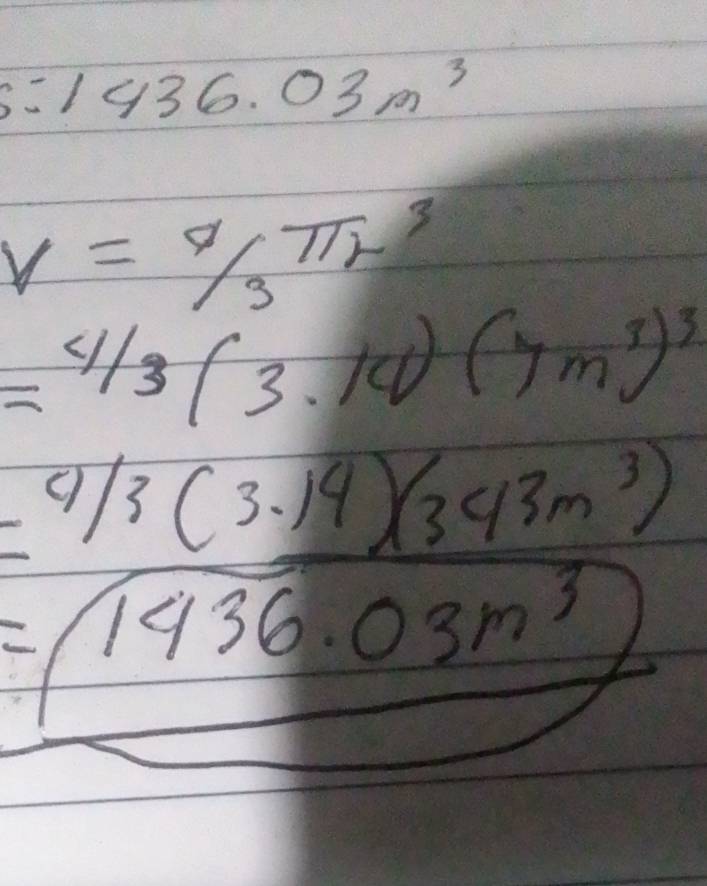 s=1436.03m³
V = 4/3 πr³
= 4/3 (3.14) (7m³)³
= 4/3 (3.14)(343m³)
= 1436.03m³